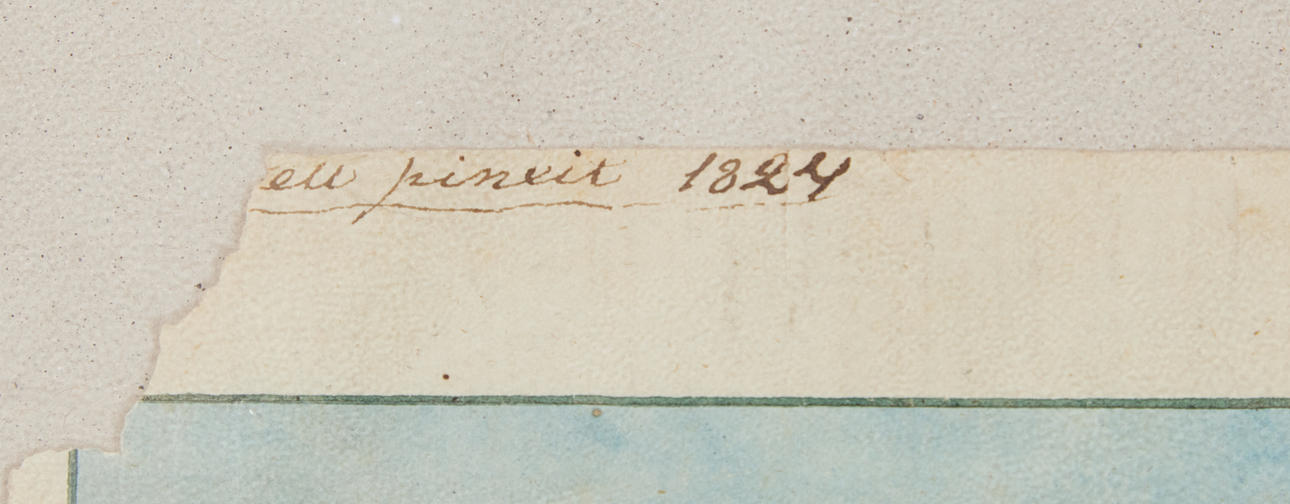 ell pinxit 1824